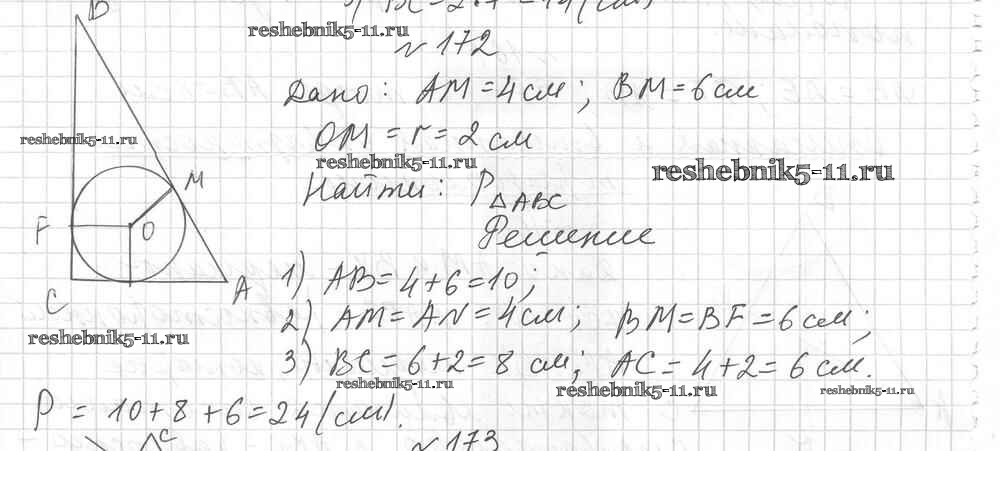 3) BC = 2 · 7 = 14 (см)
B
reshebnik5-11.ru
№ 172
Дано: AM = 4 см; BM = 6 см
reshebnik5-11.ru
OM = r = 2 см
reshebnik5-11.ru
reshebnik5-11.ru
M
Найти: P△ABC
F
O
Решение
C
A
1) AB = 4 + 6 = 10;
2) AM = AN = 4 см; BM = BF = 6 см;
reshebnik5-11.ru
3) BC = 6 + 2 = 8 см; AC = 4 + 2 = 6 см.
reshebnik5-11.ru
reshebnik5-11.ru
reshebnik5-11.ru
P = 10 + 8 + 6 = 24 (см).
C
№ 173